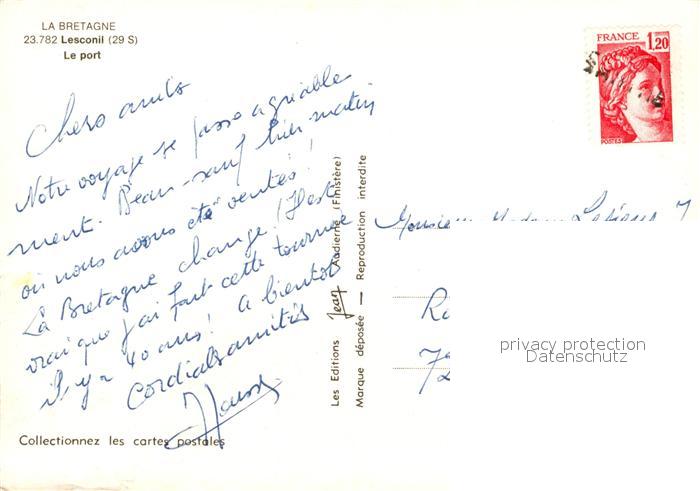 LA BRETAGNE
23.782 Lesconil (29 S)
Le port
FRANCE 1,20
POSTES
Chers amis
Notre voyage se passe agréable
ment. Beau - sauf hier matin
où nous avons été ventés !
La Bretagne change ! Il est
vrai que j'ai fait cette tournée
il y a 40 ans ! A bientôt
Cordiales amitiés
Les Editions Jean Audierne (Finistère)
Marque déposée — Reproduction interdite
Monsieur Madame
privacy protection
Datenschutz
Collectionnez les cartes postales